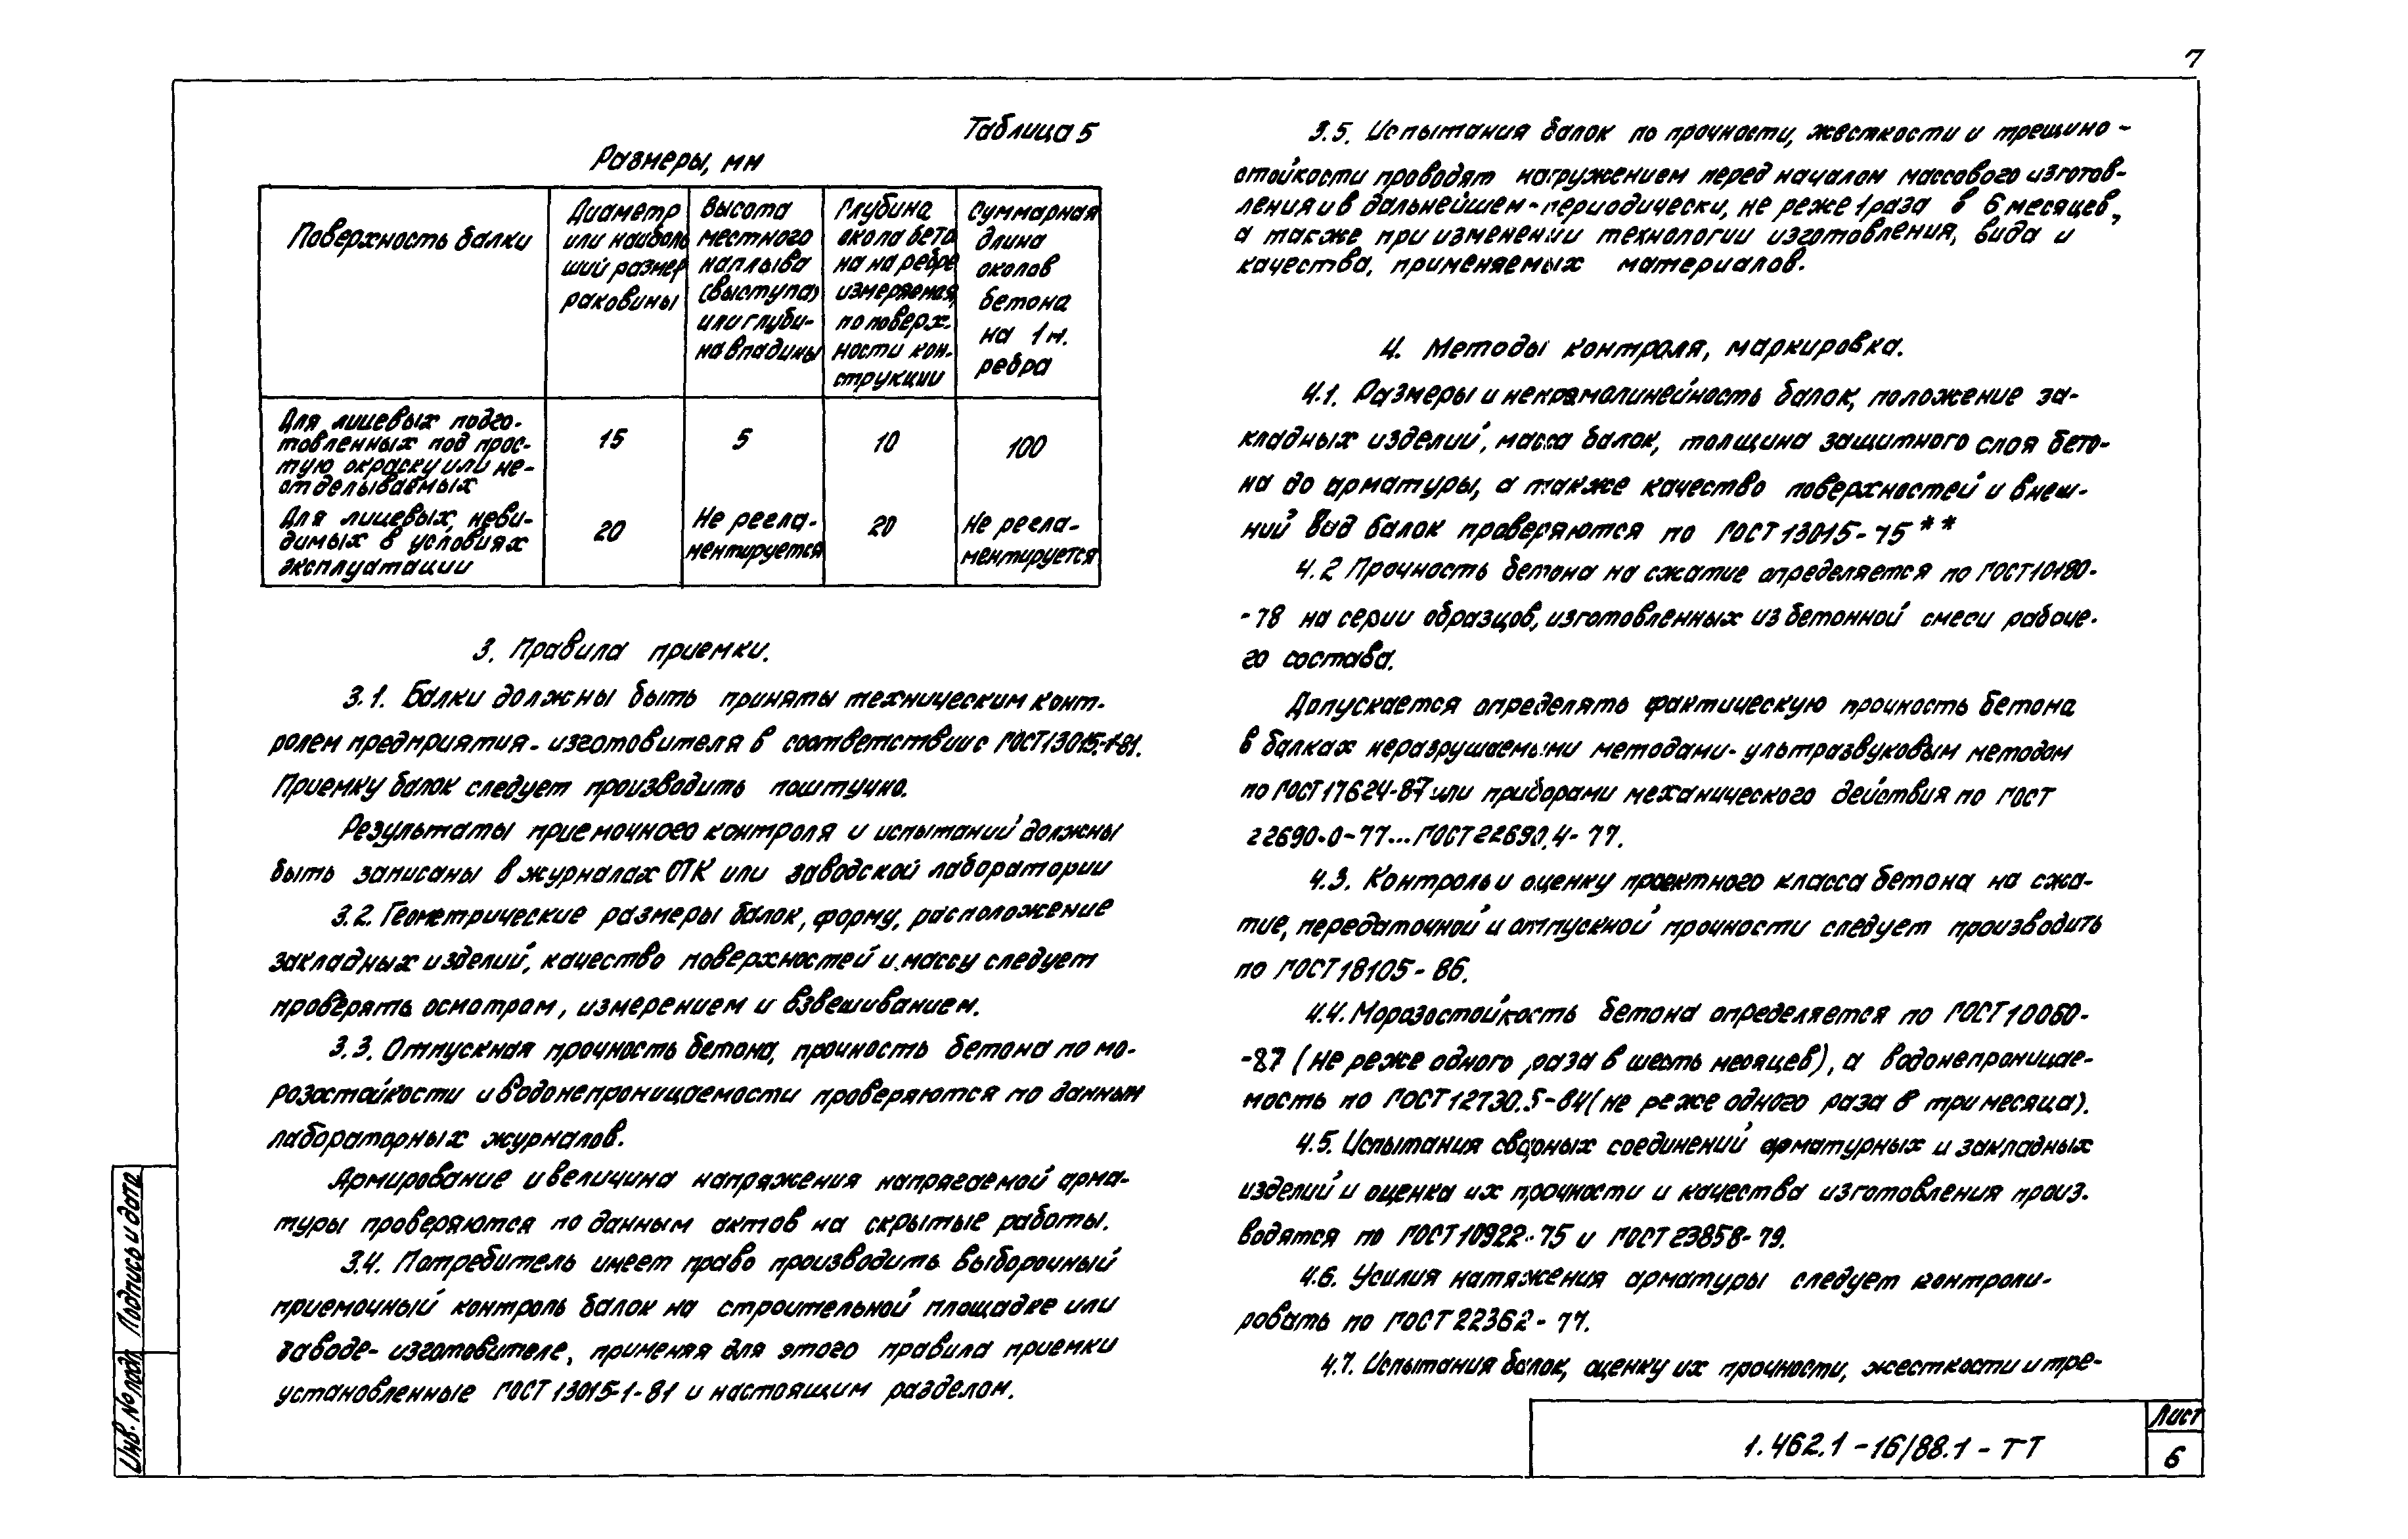 7
Таблица 5
Размеры, мм
Поверхность балки
Диаметр
или наиболь
ший размер
раковины
Высота
местного
наплыва
(выступа)
или глуби-
на впадины
Глубина
окола бето
на на ребре
измеряемая,
по поверх-
ности кон-
струкции
Суммарная
длина
околов
бетона
на 1м.
ребра
Для лицевых подго-
товленных под прос-
тую окраску или не-
отделываемых
15
5
10
100
Для лицевых, неви-
димых в условиях
эксплуатации
20
Не регла-
ментируется
20
Не регла-
ментируется
3. Правила приемки.
3.1. Балки должны быть приняты техническим конт-
ролем предприятия-изготовителя в соответствии с ГОСТ 13015.1-81.
Приемку балок следует производить поштучно.
Результаты приемочного контроля и испытаний должны
быть записаны в журналах ОТК или заводской лаборатории
3.2. Геометрические размеры балок, форму, расположение
закладных изделий, качество поверхностей и массу следует
проверять осмотром, измерением и взвешиванием.
3.3. Отпускная прочность бетона, прочность бетона по мо-
розостойкости и водонепроницаемости проверяются по данным
лабораторных журналов.
Армирование и величина напряжения напрягаемой арма-
туры проверяются по данным актов на скрытые работы.
3.4. Потребитель имеет право производить выборочный
приемочный контроль балок на строительной площадке или
заводе-изготовителе, применяя для этого правила приемки
установленные ГОСТ 13015-1-81 и настоящим разделом.
3.5. Испытания балок по прочности, жесткости и трещино-
стойкости проводят нагружением перед началом массового изготов-
ления и в дальнейшем - периодически, не реже 1 раза в 6 месяцев,
а также при изменении технологии изготовления, вида и
качества, применяемых материалов.
4. Методы контроля, маркировка.
4.1. Размеры и непрямолинейность балок, положение за-
кладных изделий, масса балок, толщина защитного слоя бето-
на до арматуры, а также качество поверхностей и внеш-
ний вид балок проверяются по ГОСТ 13015-75**
4.2 Прочность бетона на сжатие определяется по ГОСТ 10180-
-78 на серии образцов, изготовленных из бетонной смеси рабоче-
го состава.
Допускается определять фактическую прочность бетона
в балках неразрушаемыми методами - ультразвуковым методом
по ГОСТ 17624-87 или приборами механического действия по ГОСТ
22690.0-77...ГОСТ 22690.4-77.
4.3. Контроль и оценку проектного класса бетона на сжа-
тие, передаточной и отпускной прочности следует производить
по ГОСТ 18105-86.
4.4. Морозостойкость бетона определяется по ГОСТ 10060-
-87 (не реже одного раза в шесть месяцев), а водонепроницае-
мость по ГОСТ 12730.5-84 (не реже одного раза в три месяца).
4.5. Испытания сварных соединений арматурных и закладных
изделий и оценка их прочности и качества изготовления произ-
водятся по ГОСТ 10922-75 и ГОСТ 23858-79.
4.6. Усилия натяжения арматуры следует контроли-
ровать по ГОСТ 22362-77.
4.7. Испытания балок, оценку их прочности, жесткости и тре-
1.462.1-16/88.1-ТТ
Лист
6
Инв. № подл
Подпись и дата